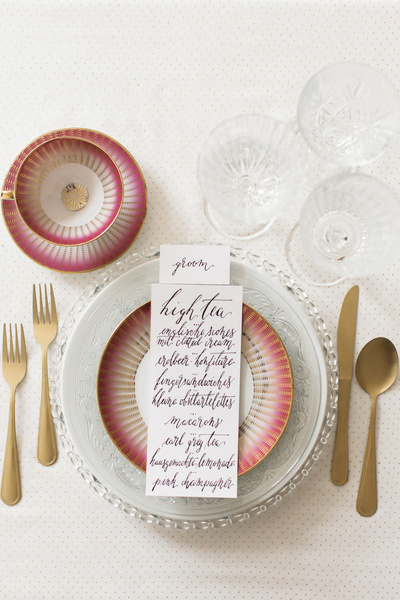 groom
high tea
englische scones
mit clotted cream
erdbeer konfitüre
fingersandwiches
kleine obsttartelettes
macarons
earl grey tea
hausgemachte lemonade
pink champagner